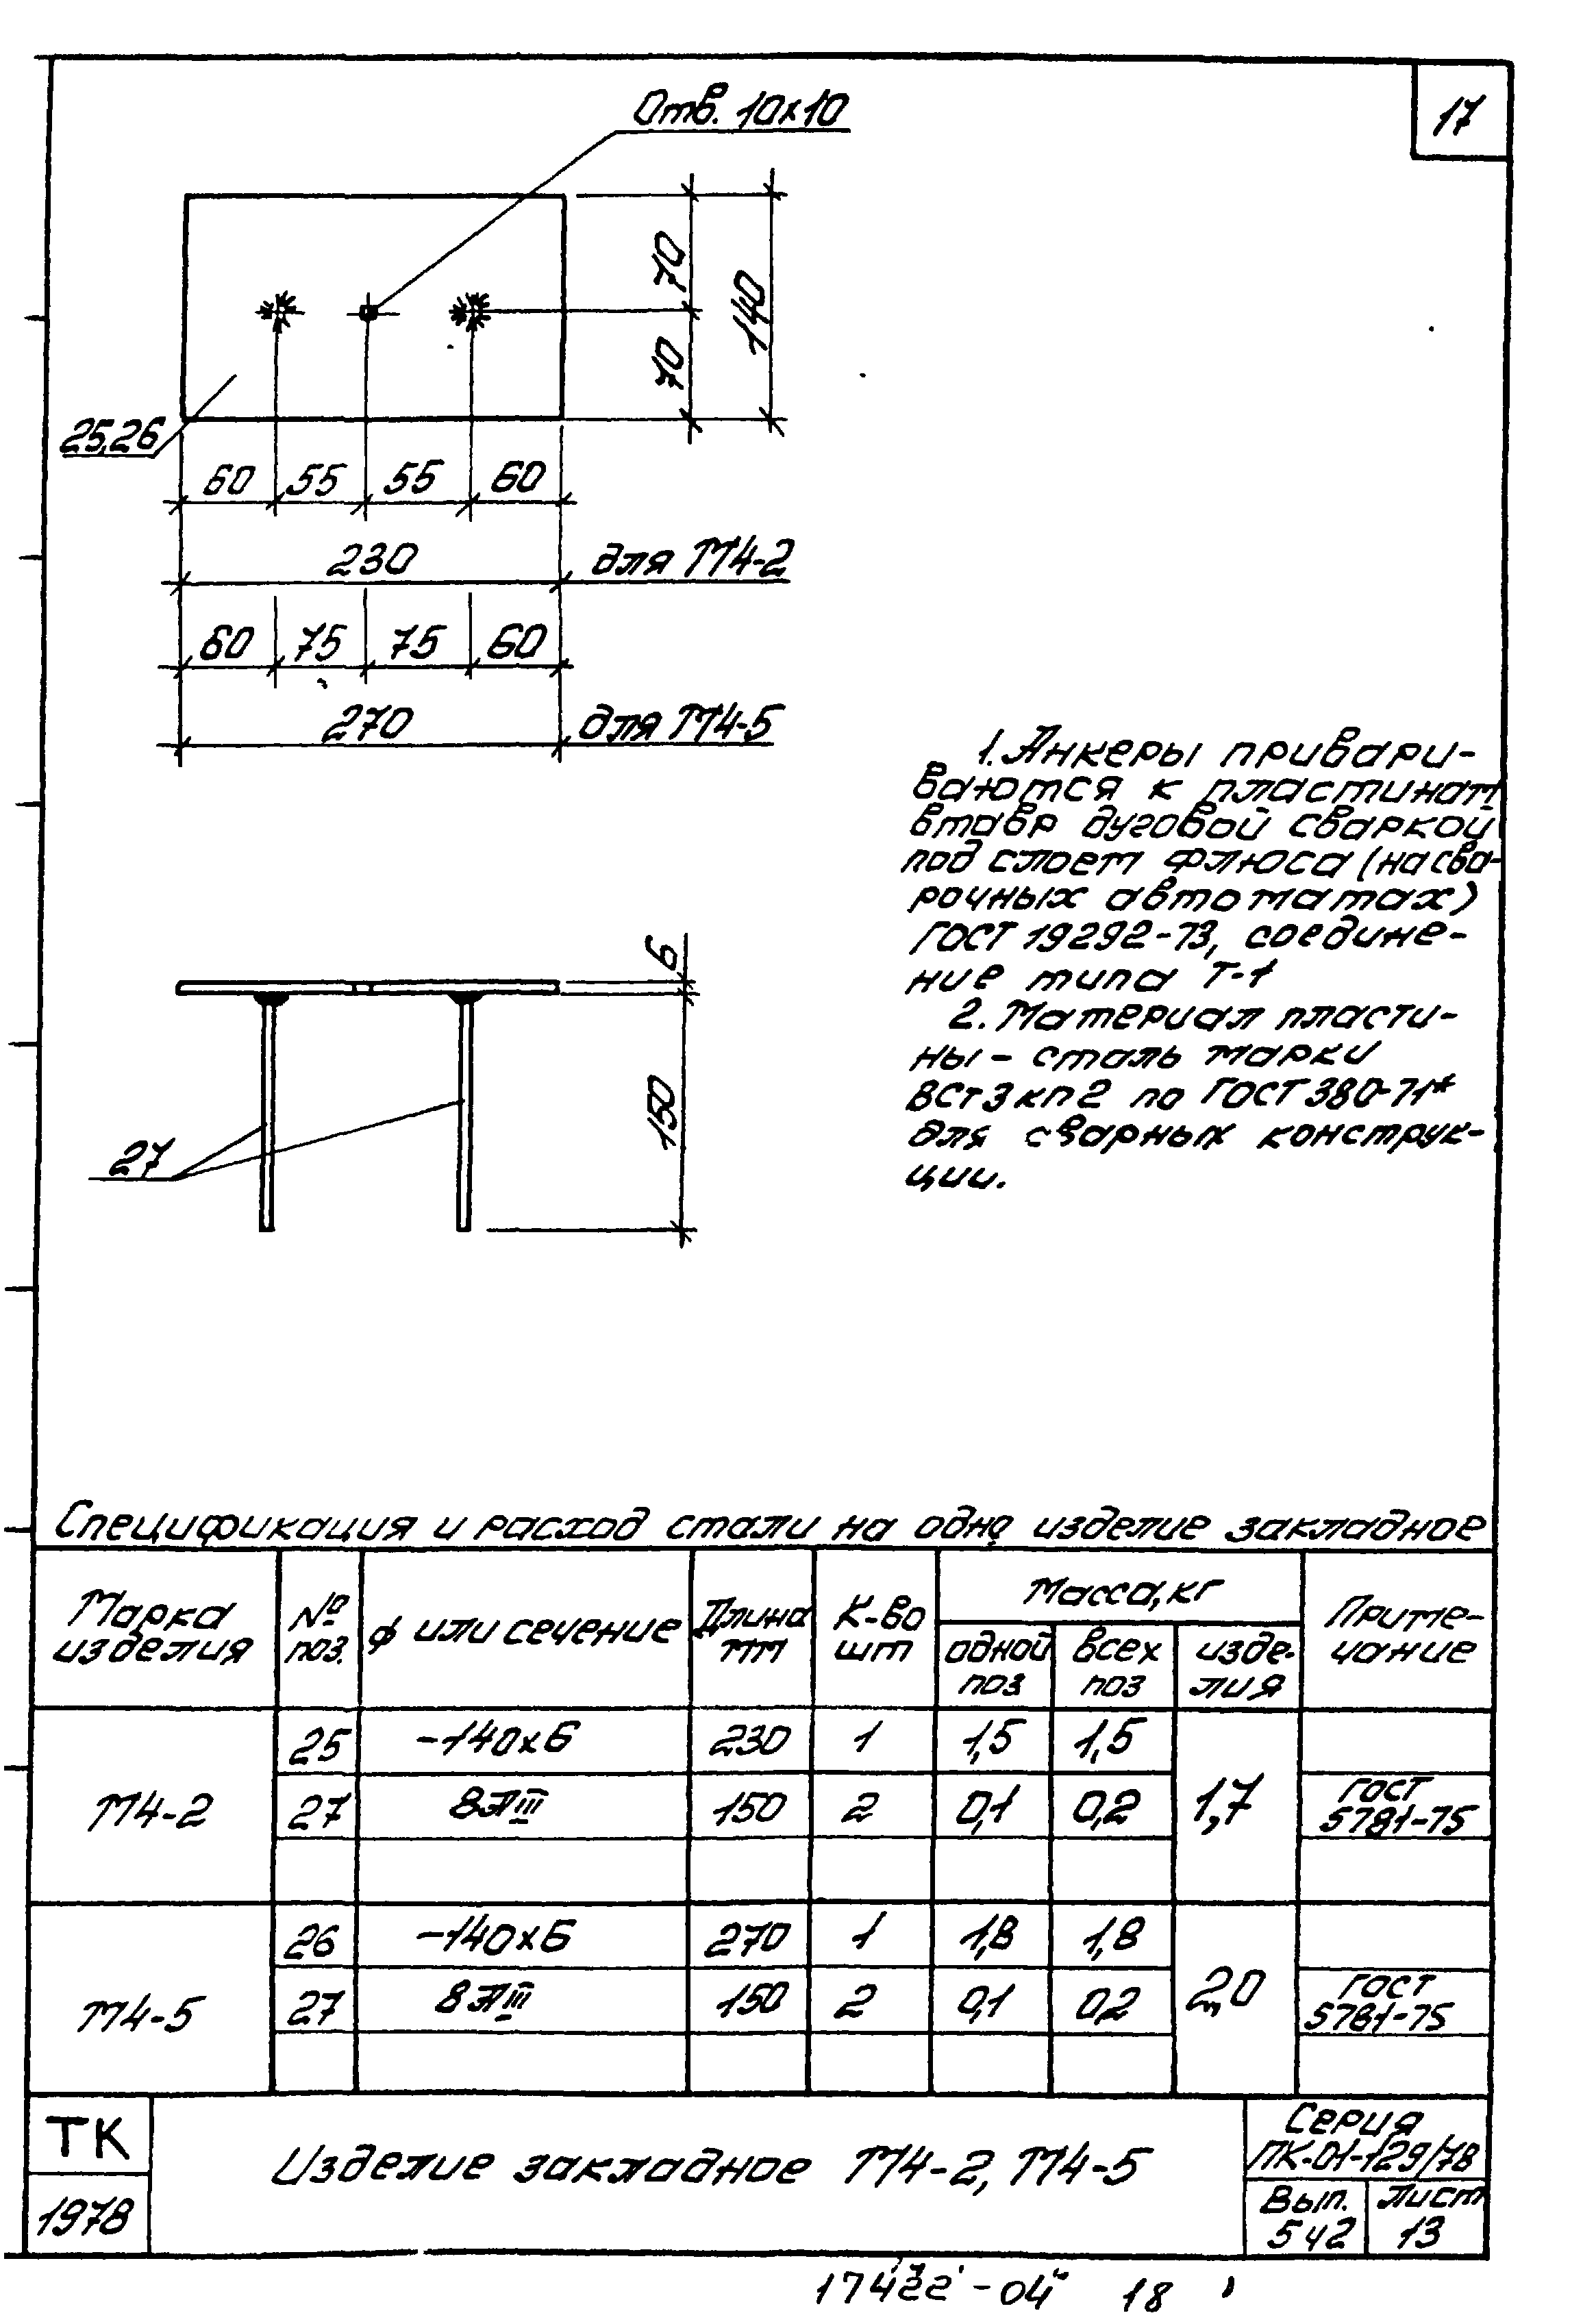 17
Отв. 10х10
70
70
140
25,26
60 55 55 60
230 для М4-2
60 75 75 60
270 для М4-5
1. Анкеры привари-
ваются к пластинам
втавр дуговой сваркой
под слоем флюса (на сва-
рочных автоматах)
ГОСТ 19292-73, соедине-
ние типа Т-1
2. Материал пласти-
ны - сталь марки
ВСт3кп2 по ГОСТ 380-71*
для сварных конструк-
ции.
6
150
27
Спецификация и расход стали на одно изделие закладное
Марка изделия
№ поз.
ф или сечение
Длина мм
К-во шт
Масса, кг
одной поз
всех поз
изде-лия
Приме-чание
М4-2
25 -140х6 230 1 1,5 1,5
27 8АIII 150 2 0,1 0,2 1,7 ГОСТ 5781-75
М4-5
26 -140х6 270 1 1,8 1,8
27 8АIII 150 2 0,1 0,2 2,0 ГОСТ 5781-75
ТК
1978
Изделие закладное М4-2, М4-5
Серия
ПК-01-129/78
Вып. 5 ч 2
Лист 13
17422-04 18